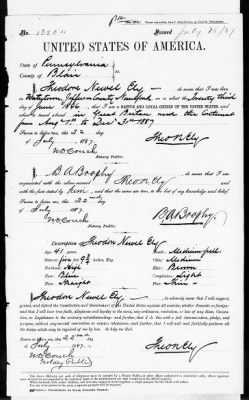 No. 13820
Issued July 25/87
UNITED STATES OF AMERICA.
State of Pennsylvania
County of Blair
I, Theodore Newel Ely, do swear that I was born
in Watertown Jefferson County New York, on or about the twenty third
day of June 1846, that I am a NATIVE AND LOYAL CITIZEN OF THE UNITED STATES, and
about to travel abroad in Great Britain and the Continent
from Aug 1st to Dec 31st 1887
Sworn to before me, this 22
day of July 1887
Theo N Ely
W D Couch
Notary Public.
I, B A Boophy, do swear that I am
acquainted with the above-named Theo N Ely, and
with the facts stated by him, and that the same are true, to the best of my knowledge and belief.
Sworn to before me, this 22nd
day of July 1887
W D Couch
B. A. Boophy
Notary Public.
Description of Theodore Newel Ely
Age: 41 years. Mouth: Medium full
Stature: five feet 9¾ inches, Eng. Chin: Medium
Forehead: High Hair: Brown
Eyes: Blue Complexion: Light
Nose: Straight Face: Thin
I, Theodore Newel Ely, do solemnly swear that I will support,
protect, and defend the Constitution and Government of the United States against all enemies, whether domestic or foreign;
and that I will bear true faith, allegiance and loyalty to the same, any ordinance, resolution, or law of any State, Convention,
or Legislature to the contrary notwithstanding; and further, that I do this with a full determination, pledge, and
purpose, without any mental reservation or evasion whatsoever; and further, that I will well and faithfully perform all
the duties which may be required of me by law. So help me God.
Sworn to before me, this 22nd day
July 1887
Theo N Ely
W D Couch
Notary Public